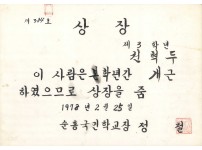 상장
제 3 학년
이 사람은 학년간 개근
하였으므로 상장을 줌
1978년 2월 25일
순흥국민학교장 정